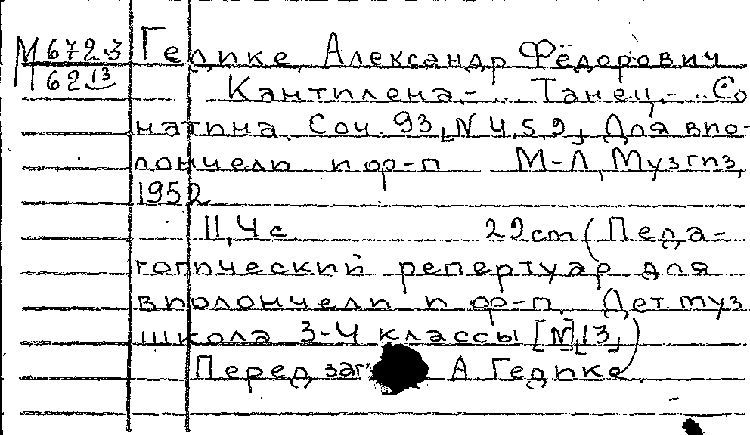 М 672.3 Гедике, Александр Фёдорович
62 13
Кантилена.- Танец.- Со-
натина. Соч. 93, N 4, 5, 9, Для вио-
лончели и ф-п М-Л, Музгиз,
1952
II, 4 с 29 cm (Педа-
гогический репертуар для
виолончели и ф-п. Дет муз
школа 3-4 классы [N, 13,)
Перед заг А Гедике.